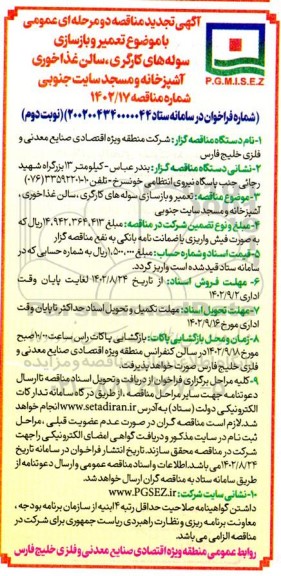 آگهی تجدید مناقصه دو مرحله ای عمومی
با موضوع تعمیر و بازسازی
سوله های کارگری ، سالن غذاخوری
آشپزخانه و مسجد سایت جنوبی
شماره مناقصه ۱۴۰۲/۱۷
P.G.M.I.S.E.Z
(شماره فراخوان در سامانه ستاد ۲۰۰۲۰۰۴۳۴۰۰۰۰۰۴۴) (نوبت دوم)
۱-نام دستگاه مناقصه گزار: شرکت منطقه ویژه اقتصادی صنایع معدنی و
فلزی خلیج فارس
۲-نشانی دستگاه مناقصه گزار: بندرعباس-کیلومتر ۱۳ بزرگراه شهید
رجائی جنب پاسگاه نیروی انتظامی خونسرخ -تلفن ۱۰-۳۳۵۹۲۲۰۱ (۰۷۶)
۳-موضوع مناقصه: تعمیر و بازسازی سوله های کارگری ، سالن غذاخوری ،
آشپزخانه و مسجد سایت جنوبی
۴-مبلغ و نوع تضمین شرکت در مناقصه: مبلغ ۱۴,۹۴۲,۳۶۴,۴۱۳ ریال که
به صورت فیش واریزی یا ضمانت نامه بانکی به نفع مناقصه گزار
۵-قیمت اسناد و شماره حساب: مبلغ ۱,۵۰۰,۰۰۰ ریال به شماره حسابی که در
سامانه ستاد قید شده است واریز گردد.
۶- مهلت فروش اسناد: از تاریخ ۱۴۰۲/۸/۲۴ لغایت پایان وقت
اداری ۱۴۰۲/۹/۲
۷-مهلت تحویل اسناد: مهلت تکمیل و تحویل اسناد حداکثر تا پایان وقت
اداری مورخ ۱۴۰۲/۹/۱۶
۸-زمان و محل بازگشایی پاکات: بازگشایی پاکات راس ساعت ۱۰:۰۰ صبح
مورخ ۱۴۰۲/۹/۱۸ در سالن کنفرانس منطقه ویژه اقتصادی صنایع معدنی و
فلزی خلیج فارس صورت خواهد پذیرفت
۹-کلیه مراحل برگزاری فراخوان از دریافت و تحویل اسناد مناقصه تا ارسال
دعوتنامه جهت سایر مراحل مناقصه ، از طریق درگاه سامانه تدارکات
الکترونیکی دولت (ستاد) به آدرس www.setadiran.ir انجام خواهد
شد.لازم است مناقصه گران در صورت عدم عضویت قبلی ، مراحل
ثبت نام در سایت مذکور و دریافت گواهی امضای الکترونیکی را جهت
شرکت در مناقصه محقق سازند. تاریخ انتشار فراخوان در سامانه تاریخ
۱۴۰۲/۸/۲۴ می باشد.اطلاعات و اسناد مناقصه عمومی و ارسال دعوتنامه از
طریق سامانه ستاد به مناقصه گران ارسال خواهد شد.
۱۰-نشانی سایت شرکت: www.PGSEZ.ir
داشتن گواهینامه صلاحیت حداقل رتبه ۴ ابنیه از سازمان برنامه بودجه ،
معاونت برنامه ریزی و نظارت راهبردی ریاست جمهوری برای شرکت در
مناقصه الزامی می باشد.
روابط عمومی منطقه ویژه اقتصادی صنایع معدنی و فلزی خلیج فارس